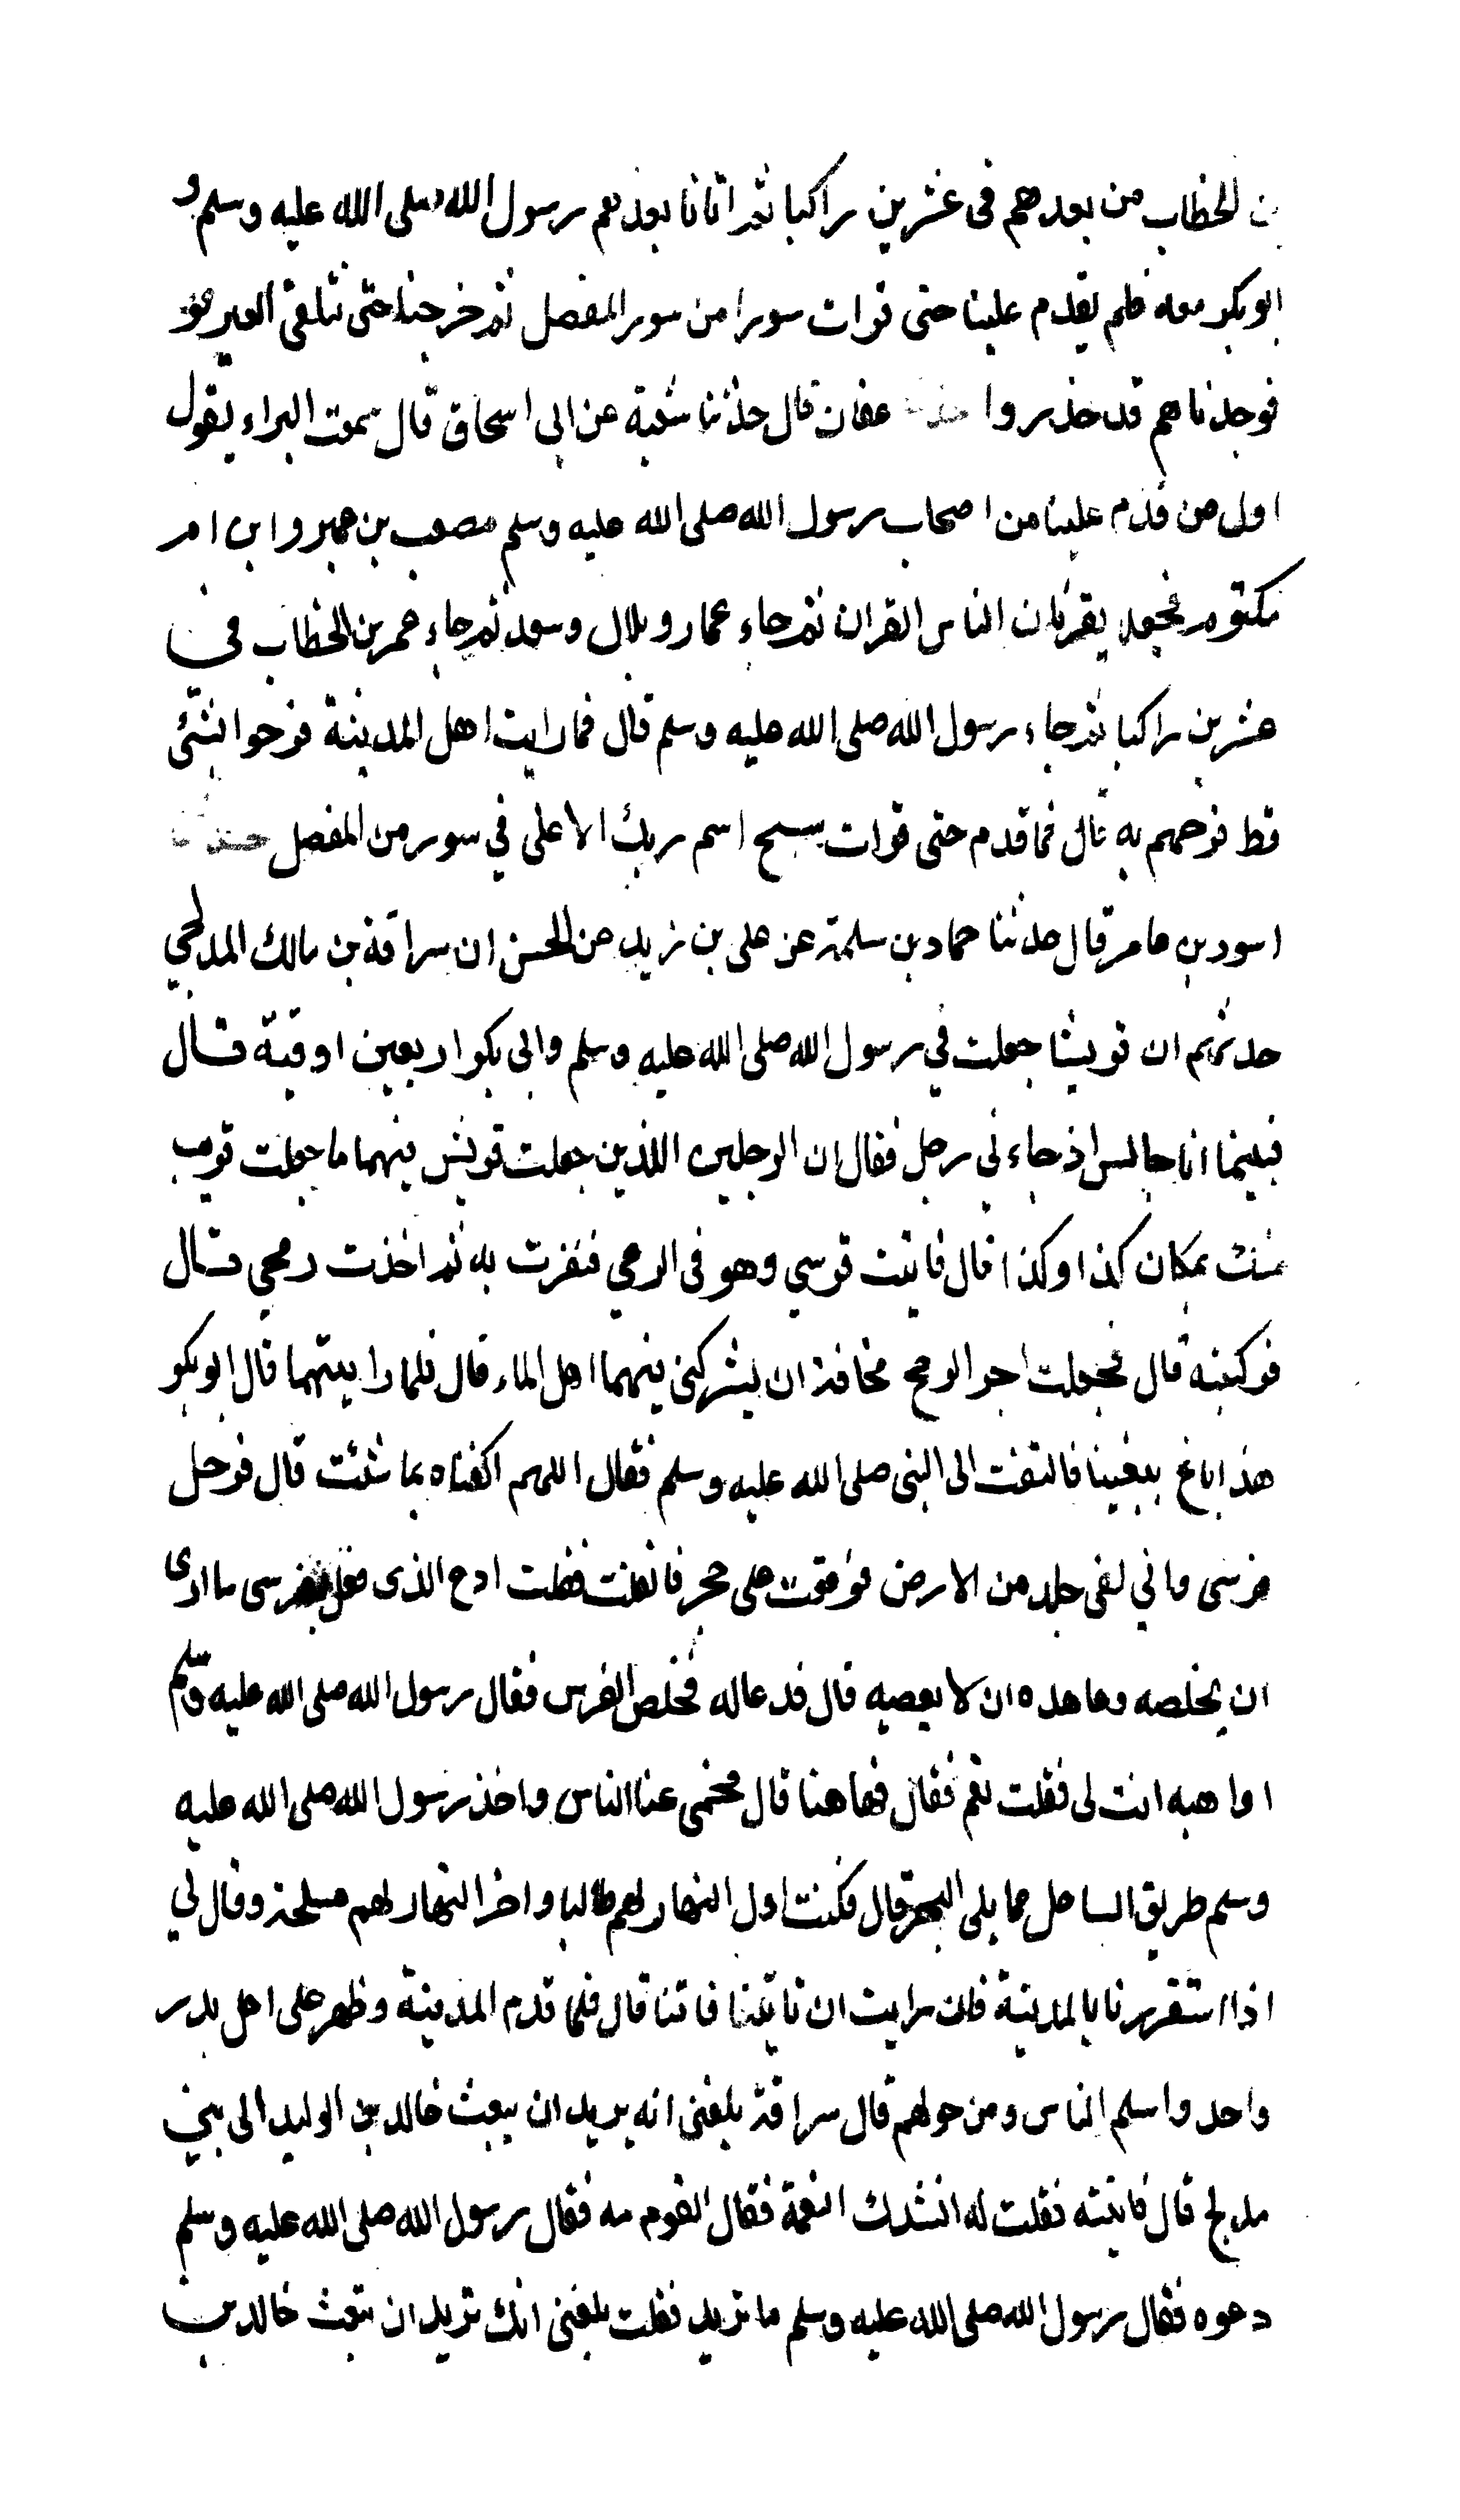 بن الخطاب من بعدهم فى عشرين راكبا ثم اتانا بعدهم رسول الله صلى الله عليه وسلم و
ابو بكر معه فلم يقدم علينا حتى قرات سورا من سور المفصل ثم خرجنا حتى نتلقى العير
فوجدناهم قد حذروا حدثنا عفان قال حدثنا شعبة عن ابى اسحاق قال سمعت البراء يقول
اول من قدم علينا من اصحاب رسول الله صلى الله عليه وسلم مصعب بن عمير وابن ام
مكتوم فجعلا يقرئان الناس القران ثم جاء عمار وبلال وسعد ثم جاء عمر بن الخطاب في
عشرين راكبا ثم جاء رسول الله صلى الله عليه وسلم قال فما رايت اهل المدينة فرحوا بشئ
قط فرحهم به قال فما قدم حتى قرات سبح اسم ربك الاعلى في سور من المفصل حدثنا
اسود بن عامر قال حدثنا حماد بن سلمة عن على بن زيد عن الحسن ان سراقة بن مالك المدلجي
حدثهم ان قريشا جعلت في رسول الله صلى الله عليه وسلم وابى بكر اربعين اوقية قال
فبينما انا جالس اذ جاء ني رجل فقال ان الرجلين اللذين جعلت قريش فيهما ما جعلت قريب
منك بمكان كذا وكذا قال فاتيت فرسي وهو فى الرعي فنفرت به ثم اخذت رمحي قال
فركبته قال فجعلت اجر الرمح مخافة ان يشركنى فيهما اهل الماء قال فلما رايتهما قال ابو بكر
هذا باغ يبغينا فالتفت الى النبى صلى الله عليه وسلم فقال اللهم اكفناه بما شئت قال فوحل
فرسى وانى لفى جلد من الارض فوقعت على حجر فانقلبت فقلت ادع الذى فعل بفرسى ما ارى
ان يخلصه وعاهده ان لا يعصيه قال فدعا له فخلص الفرس فقال رسول الله صلى الله عليه وسلم
اواهبه انت لى فقلت نعم فقال فهاهنا قال فخمى عنا الناس واخذ رسول الله صلى الله عليه
وسلم طريق الساحل مما يلى البحر قال فكنت اول النهار لهم طالبا واخر النهار لهم مسلحة وقال لي
اذا استقررنا بالمدينة فان رايت ان تاتينا فاتنا قال فلما قدم المدينة وظهر على اهل بدر
واحد واسلم الناس ومن حولهم قال سراقة بلغنى انه يريد ان يبعث خالد بن الوليد الى بني
مدلج قال فاتيته فقلت له انشدك النعمة فقال القوم مه فقال رسول الله صلى الله عليه وسلم
دعوه فقال رسول الله صلى الله عليه وسلم ما تريد فقلت بلغنى انك تريد ان تبعث خالد بن